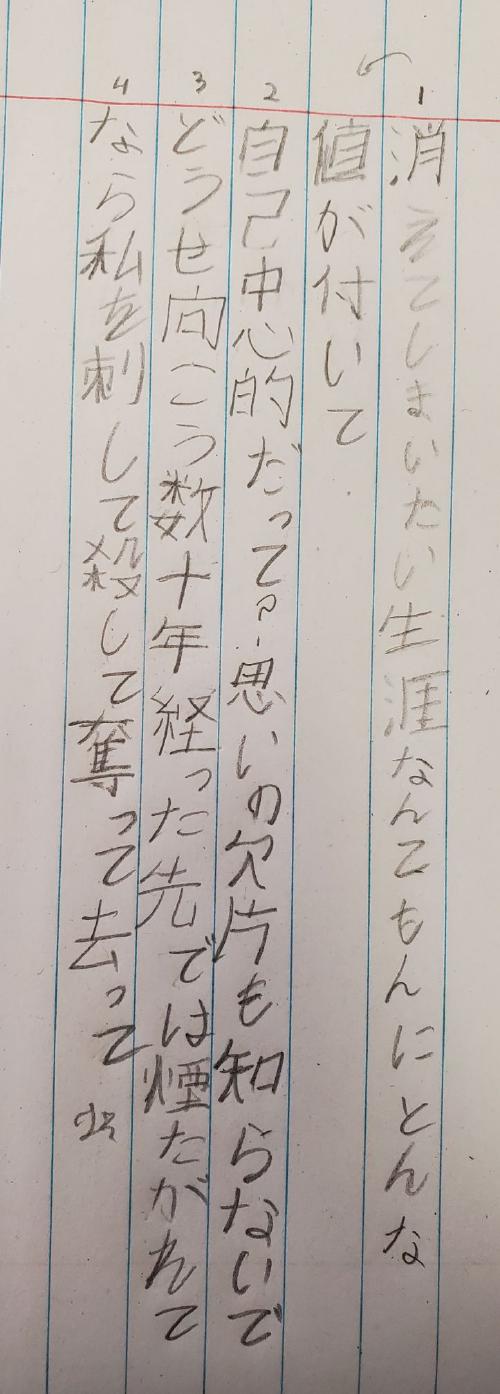 1 消えてしまいたい生涯なんてもんにとんな
値が付いて
2 自己中心的だって?思いの欠片も知らないで
3 どうせ向こう数十年経った先では煙たがれて
4 なら私を刺して殺して奪って去って